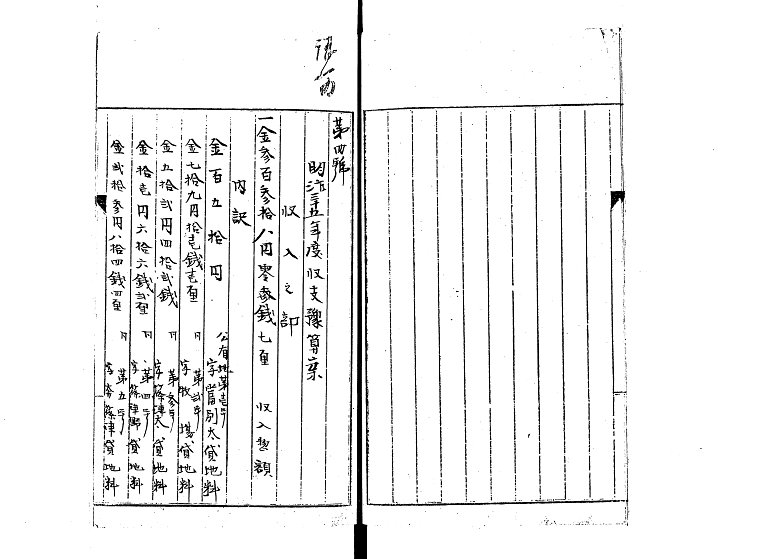 第四號
明治三十五年度収支豫算案
収入之部
一金参百参拾八円零参銭七厘 収入惣額
内訳
金百五拾円 公有地第壱号 字當別太貸地料
金七拾九円拾壱銭壱厘 仝 第弐号 字牧場貸地料
金五拾弐円四拾弐銭 仝 第参号 字篠津太貸地料
金拾壱円六拾六銭弐厘 仝 第四号 字篠津野貸地料
金弐拾参円八拾四銭四厘 仝 第五号 字奔篠津貸地料